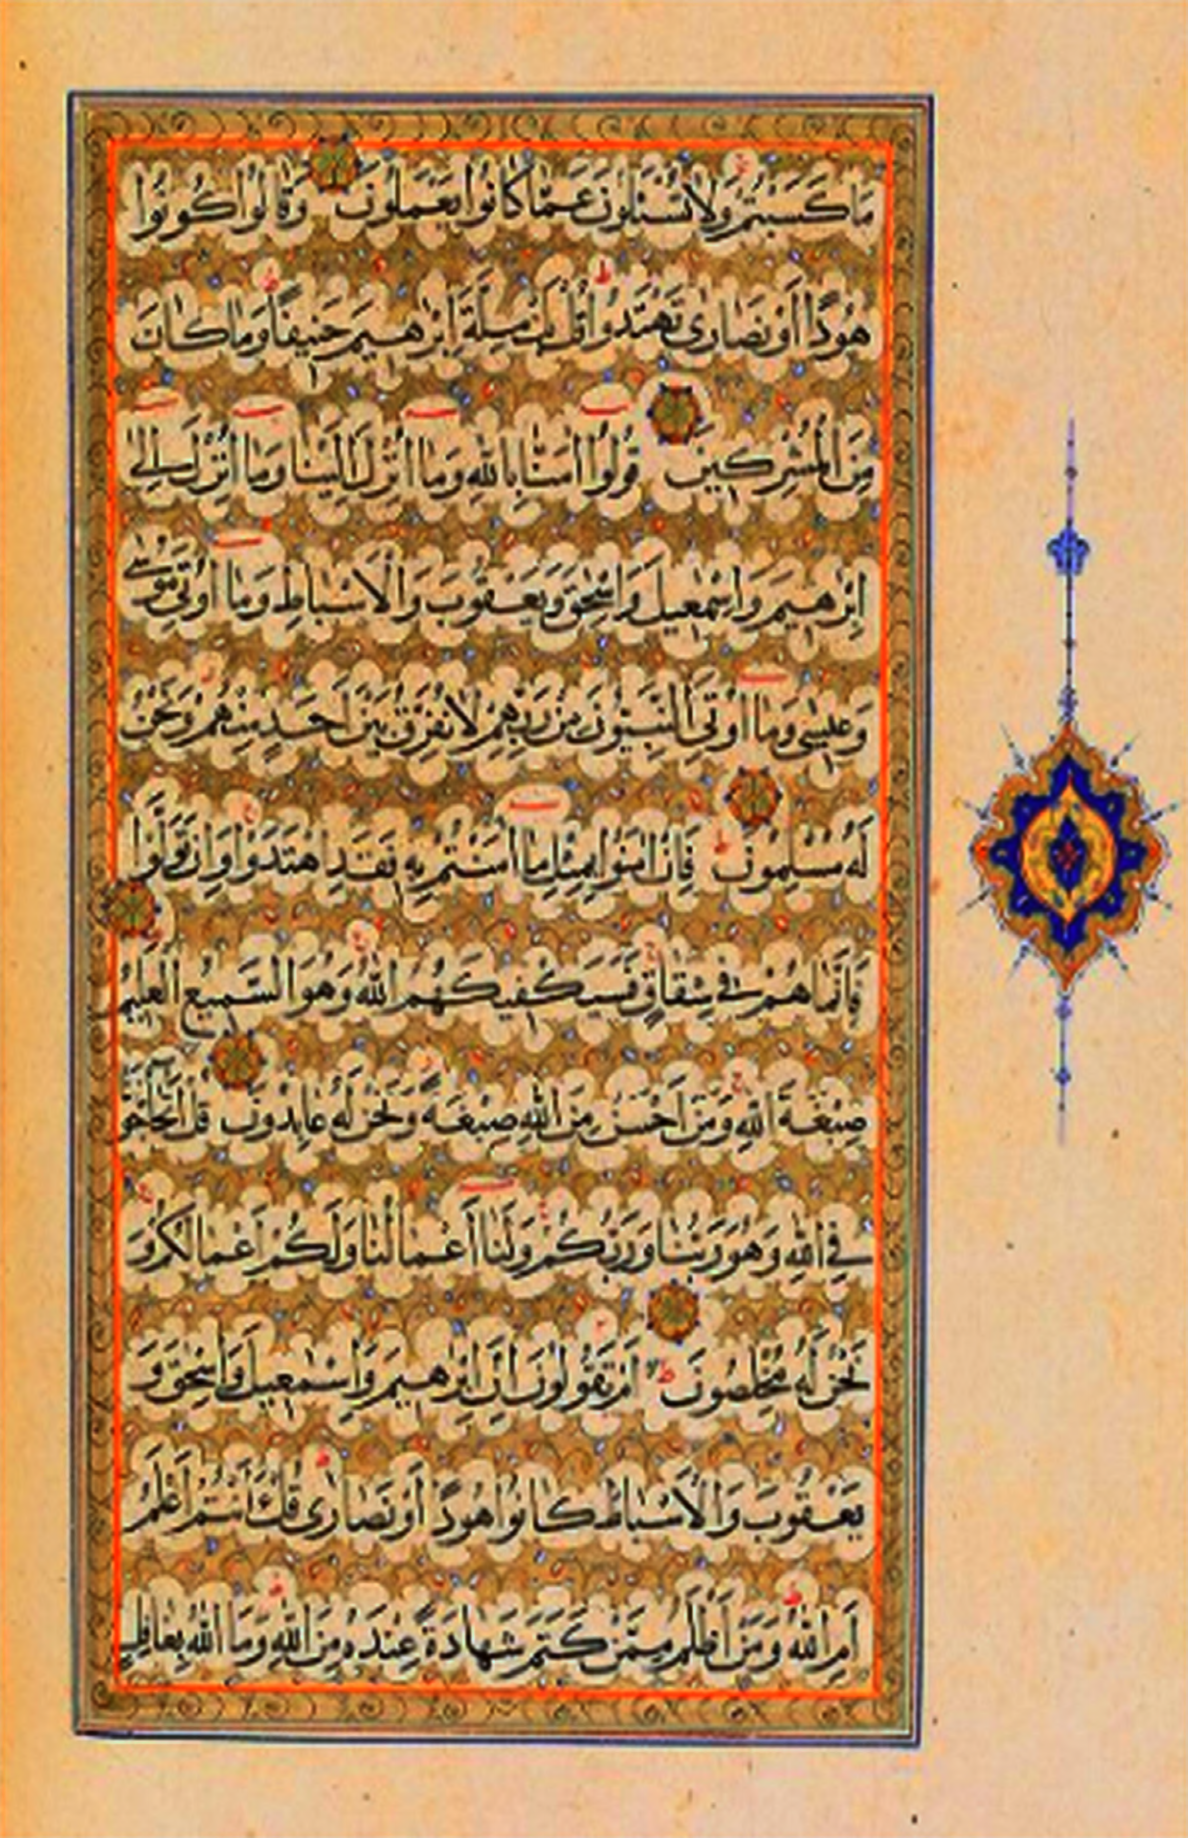 مَا كَسَبْتُمْ وَلَا تُسْئَلُونَ عَمَّا كَانُوا يَعْمَلُونَ وَقَالُوا كُونُوا
هُودًا أَوْ نَصَارَى تَهْتَدُوا قُلْ بَلْ مِلَّةَ إِبْرٰهِيمَ حَنِيفًا وَمَا كَانَ
مِنَ الْمُشْرِكِينَ قُولُوا اٰمَنَّا بِاللّٰهِ وَمَا أُنْزِلَ إِلَيْنَا وَمَا أُنْزِلَ إِلٰى
إِبْرٰهِيمَ وَإِسْمٰعِيلَ وَإِسْحٰقَ وَيَعْقُوبَ وَالْأَسْبَاطِ وَمَا أُوتِيَ مُوسٰى
وَعِيسٰى وَمَا أُوتِيَ النَّبِيُّونَ مِنْ رَبِّهِمْ لَا نُفَرِّقُ بَيْنَ أَحَدٍ مِنْهُمْ وَنَحْنُ
لَهُ مُسْلِمُونَ فَإِنْ اٰمَنُوا بِمِثْلِ مَا اٰمَنْتُمْ بِهِ فَقَدِ اهْتَدَوْا وَإِنْ تَوَلَّوْا
فَإِنَّمَا هُمْ فِي شِقَاقٍ فَسَيَكْفِيكَهُمُ اللّٰهُ وَهُوَ السَّمِيعُ الْعَلِيمُ
صِبْغَةَ اللّٰهِ وَمَنْ أَحْسَنُ مِنَ اللّٰهِ صِبْغَةً وَنَحْنُ لَهُ عَابِدُونَ قُلْ أَتُحَاجُّونَنَا
فِي اللّٰهِ وَهُوَ رَبُّنَا وَرَبُّكُمْ وَلَنَا أَعْمَالُنَا وَلَكُمْ أَعْمَالُكُمْ وَ
نَحْنُ لَهُ مُخْلِصُونَ أَمْ تَقُولُونَ إِنَّ إِبْرٰهِيمَ وَإِسْمٰعِيلَ وَإِسْحٰقَ وَ
يَعْقُوبَ وَالْأَسْبَاطَ كَانُوا هُودًا أَوْ نَصَارَى قُلْ ءَأَنْتُمْ أَعْلَمُ
أَمِ اللّٰهُ وَمَنْ أَظْلَمُ مِمَّنْ كَتَمَ شَهَادَةً عِنْدَهُ مِنَ اللّٰهِ وَمَا اللّٰهُ بِغَافِلٍ